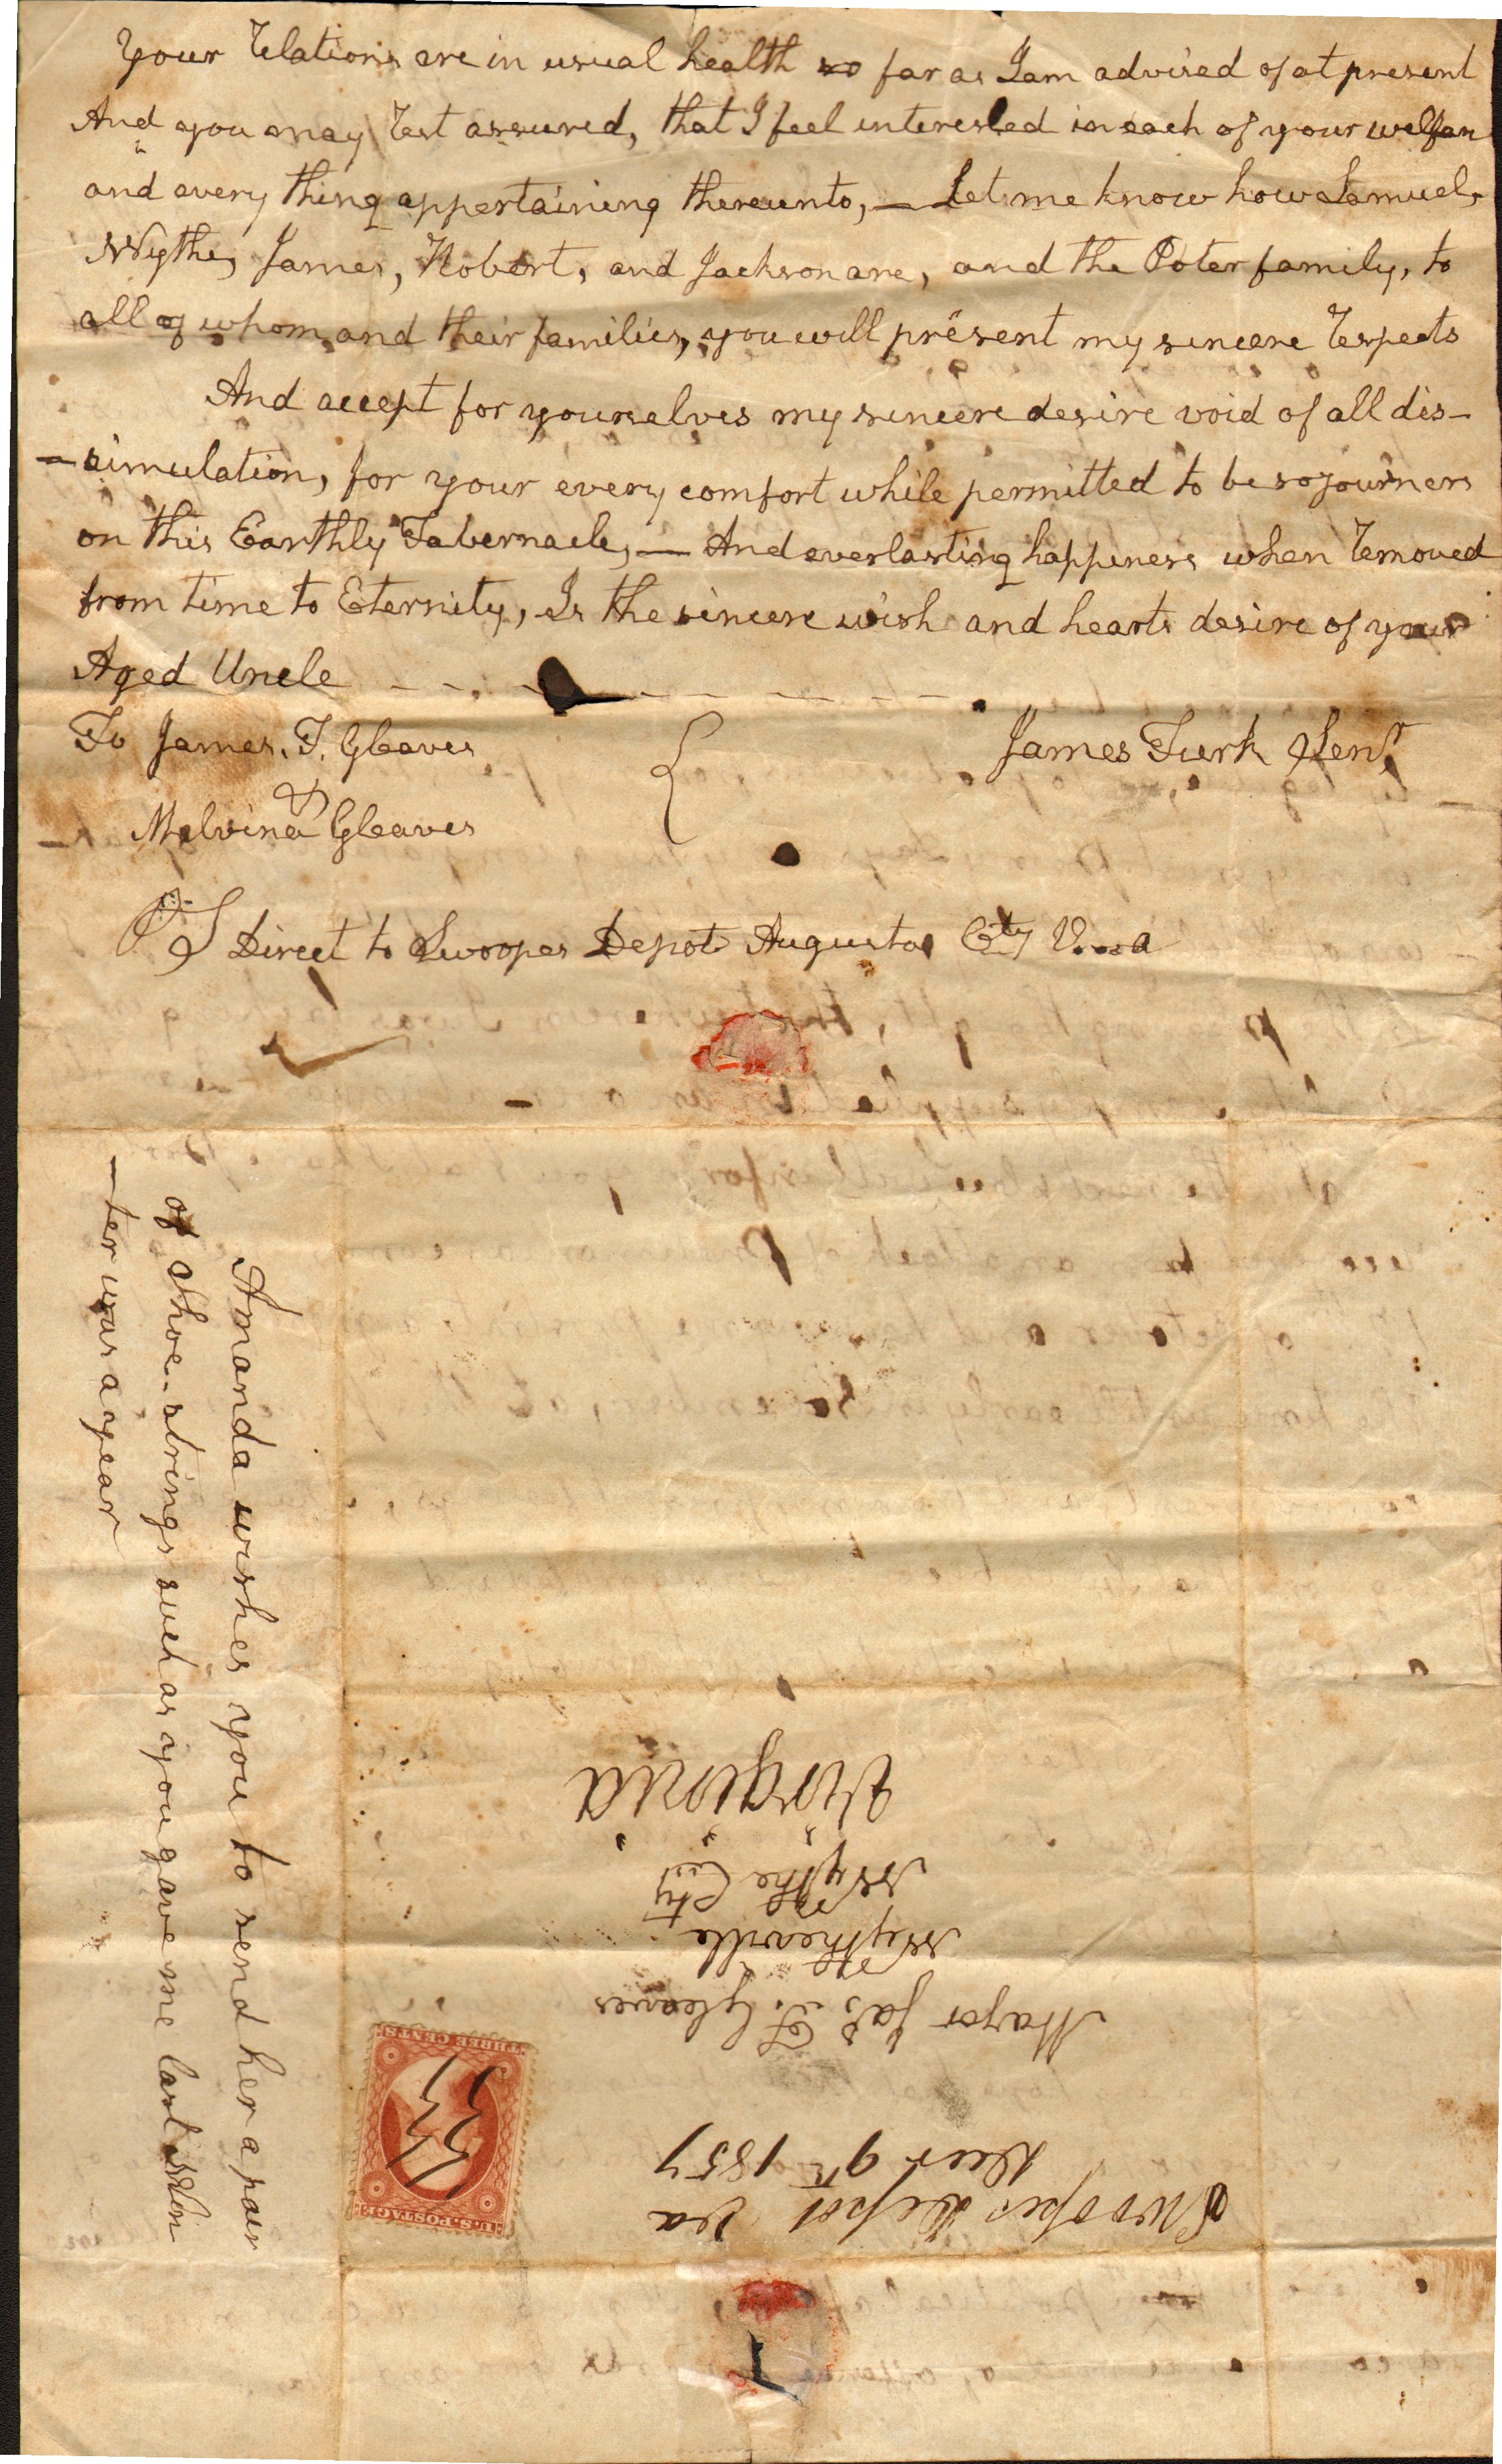 Your relations are in usual health so far as I am advised of at present
And you may rest assured, that I feel interested in each of your welfare
and every thing appertaining thereunto, — Let me know how Samuel,
Wythe, James, Robert, and Jackson are, and the Poter family, to
all of whom, and their families, you will present my sincere respects
And accept for yourselves my sincere desire void of all dis-
-simulation, for your every comfort while permitted to be sojourners
on this Earthly Tabernacle, — And everlasting happiness when removed
from time to Eternity, Is the sincere wish and hearts desire of your
Aged Uncle
To James. T. Gleaves
James Turk Senr.
&
Melvina Gleaves
PS Direct to Swoopes Depot Augusta Cty Va
Amanda wishes you to send her a pair
of shoe-strings such as you gave me last Win
-ter was a year
Swoopes Depot Va
Decr 9th 1857
Major Jas. T. Gleaves
Wytheville
Wythe Cty
Virginia
U.S. POSTAGE
THREE CENTS